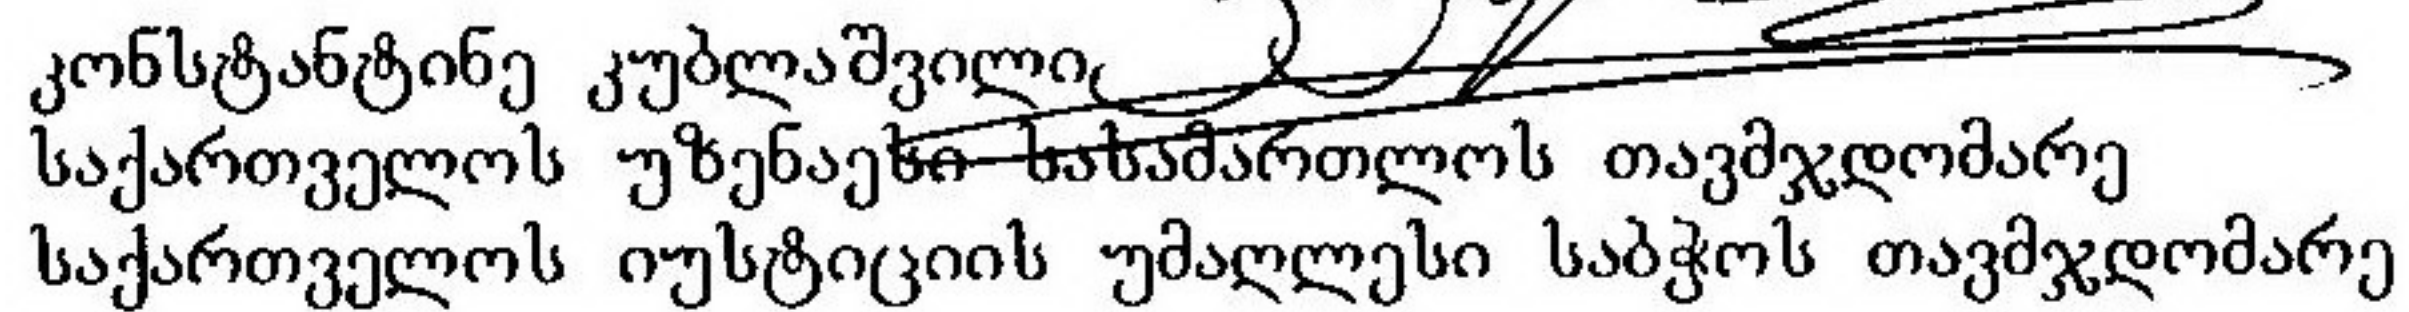 კონსტანტინე კუბლაშვილი
საქართველოს უზენაესი სასამართლოს თავმჯდომარე
საქართველოს იუსტიციის უმაღლესი საბჭოს თავმჯდომარე